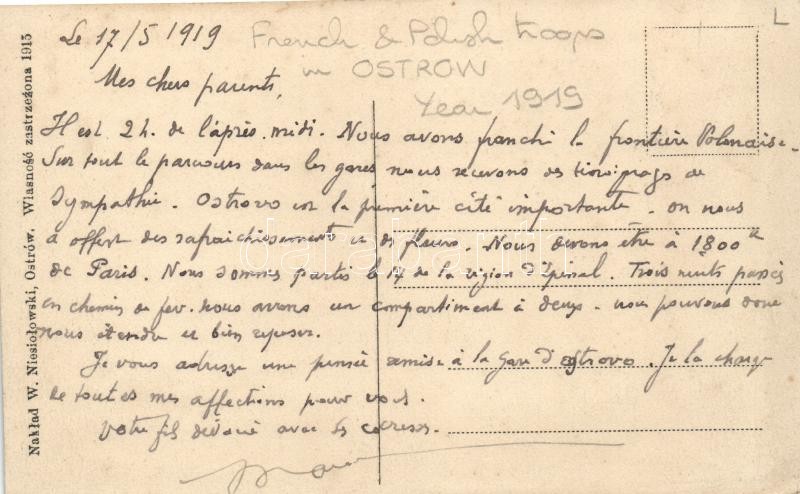 Le 17/5 1919
French & Polish troops
in OSTROW
Year 1919
Mes chers parents,
Il est 2 h. de l'après-midi. Nous avons franchi la frontière Polonaise.
Sur tout le parcours dans les gares nous recevons des témoignages de
sympathie. Ostrovo est la première cité importante. on nous
a offert des rafraichissements et des fleurs. Nous devons être à 1800 k
de Paris. Nous sommes partis le 14 de la région d'Epinal. Trois nuits passées
en chemin de fer. nous avons un compartiment à deux. nous pouvons donc
nous étendre et bien reposer.
Je vous adresse une pensée remise à la gare d'Ostrovo. Je la charge
de toutes mes affections pour vous.
Votre fils dévoué avec ses caresses.
Nakład W. Niesiołowski, Ostrów. Własność zastrzeżona 1915
darabanth
L